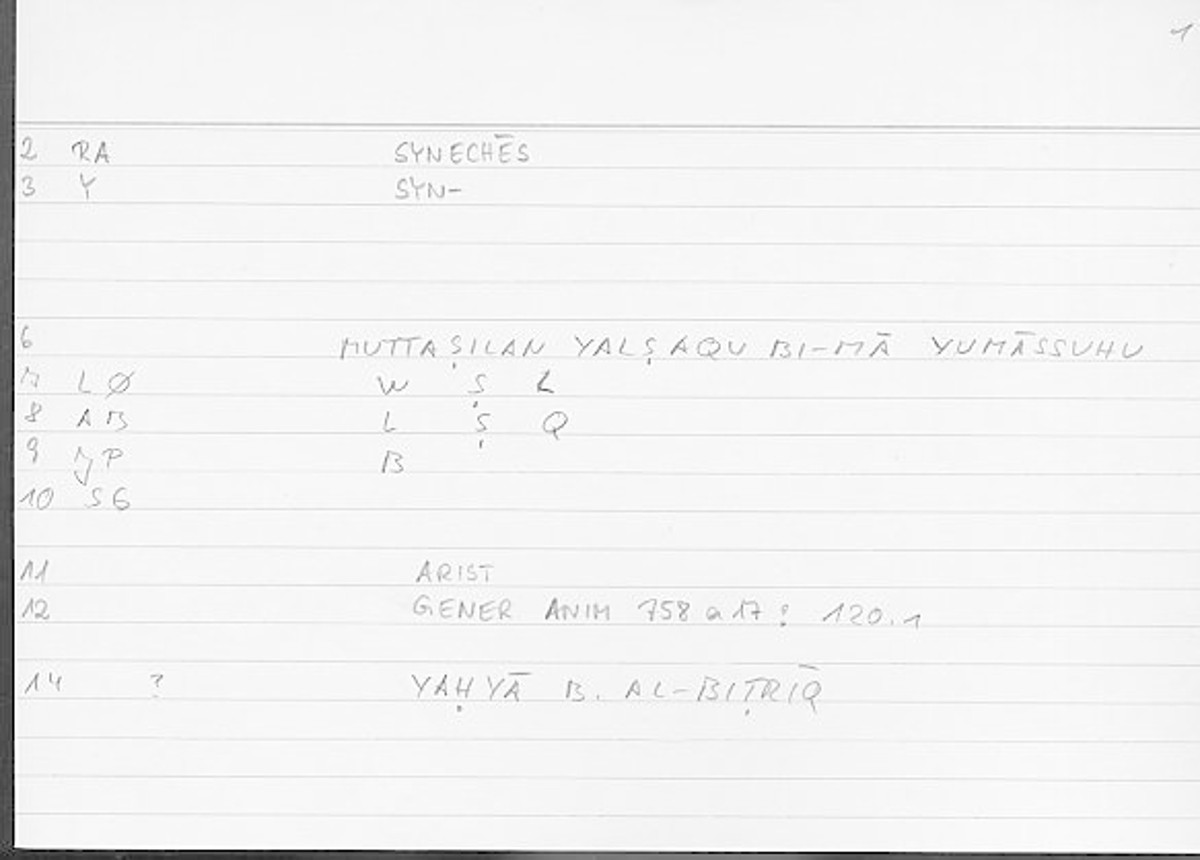 1
2 RA SYNECHĒS
3 Y SYN-
6 MUTTAṢILAN YALṢAQU BI-MĀ YUMĀSSUHU
7 LØ W Ṣ L
8 AB L Ṣ Q
9 JP B
10 SG
11 ARIST
12 GENER ANIM 758 a 17 : 120.1
14 ? YAḤYĀ B. AL-BIṬRĪQ